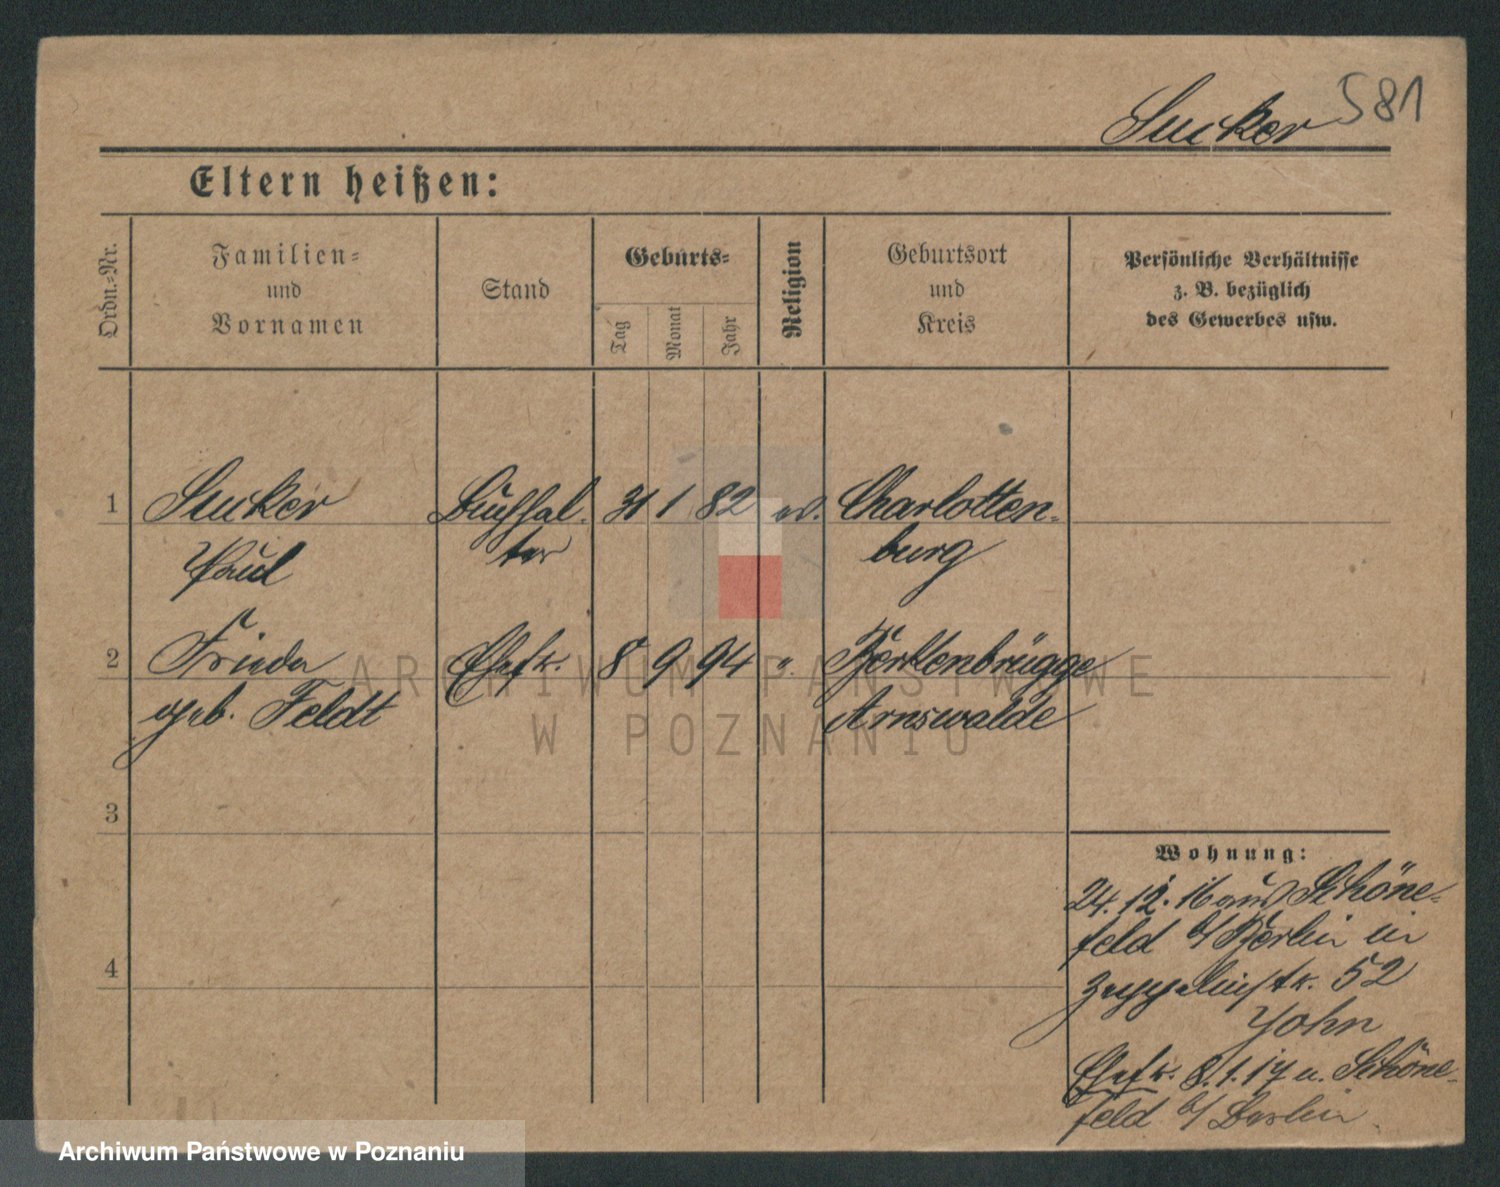 Sucker 581
Eltern heißen:
Ordn.-Nr.
Familien-
und
Vornamen
Stand
Geburts-
Tag
Monat
Jahr
Religion
Geburtsort
und
Kreis
Persönliche Verhältnisse
z. B. bezüglich
des Gewerbes usw.
1 Sucker Buchhal- 31 1 82 ev. Charlotten-
Paul ter burg
2 Frieda Ehefr. 8 9 94 " Berkenbrügge
geb. Feldt Arnswalde
3
4
Wohnung:
24. 12. 16 aus Schöne-
feld b/ Berlin in
Zeppelinstr. 52
John
Ehefr. 8. 1. 17 n. Schöne-
feld b/ Berlin
ARCHIWUM PAŃSTWOWE
W POZNANIU
Archiwum Państwowe w Poznaniu